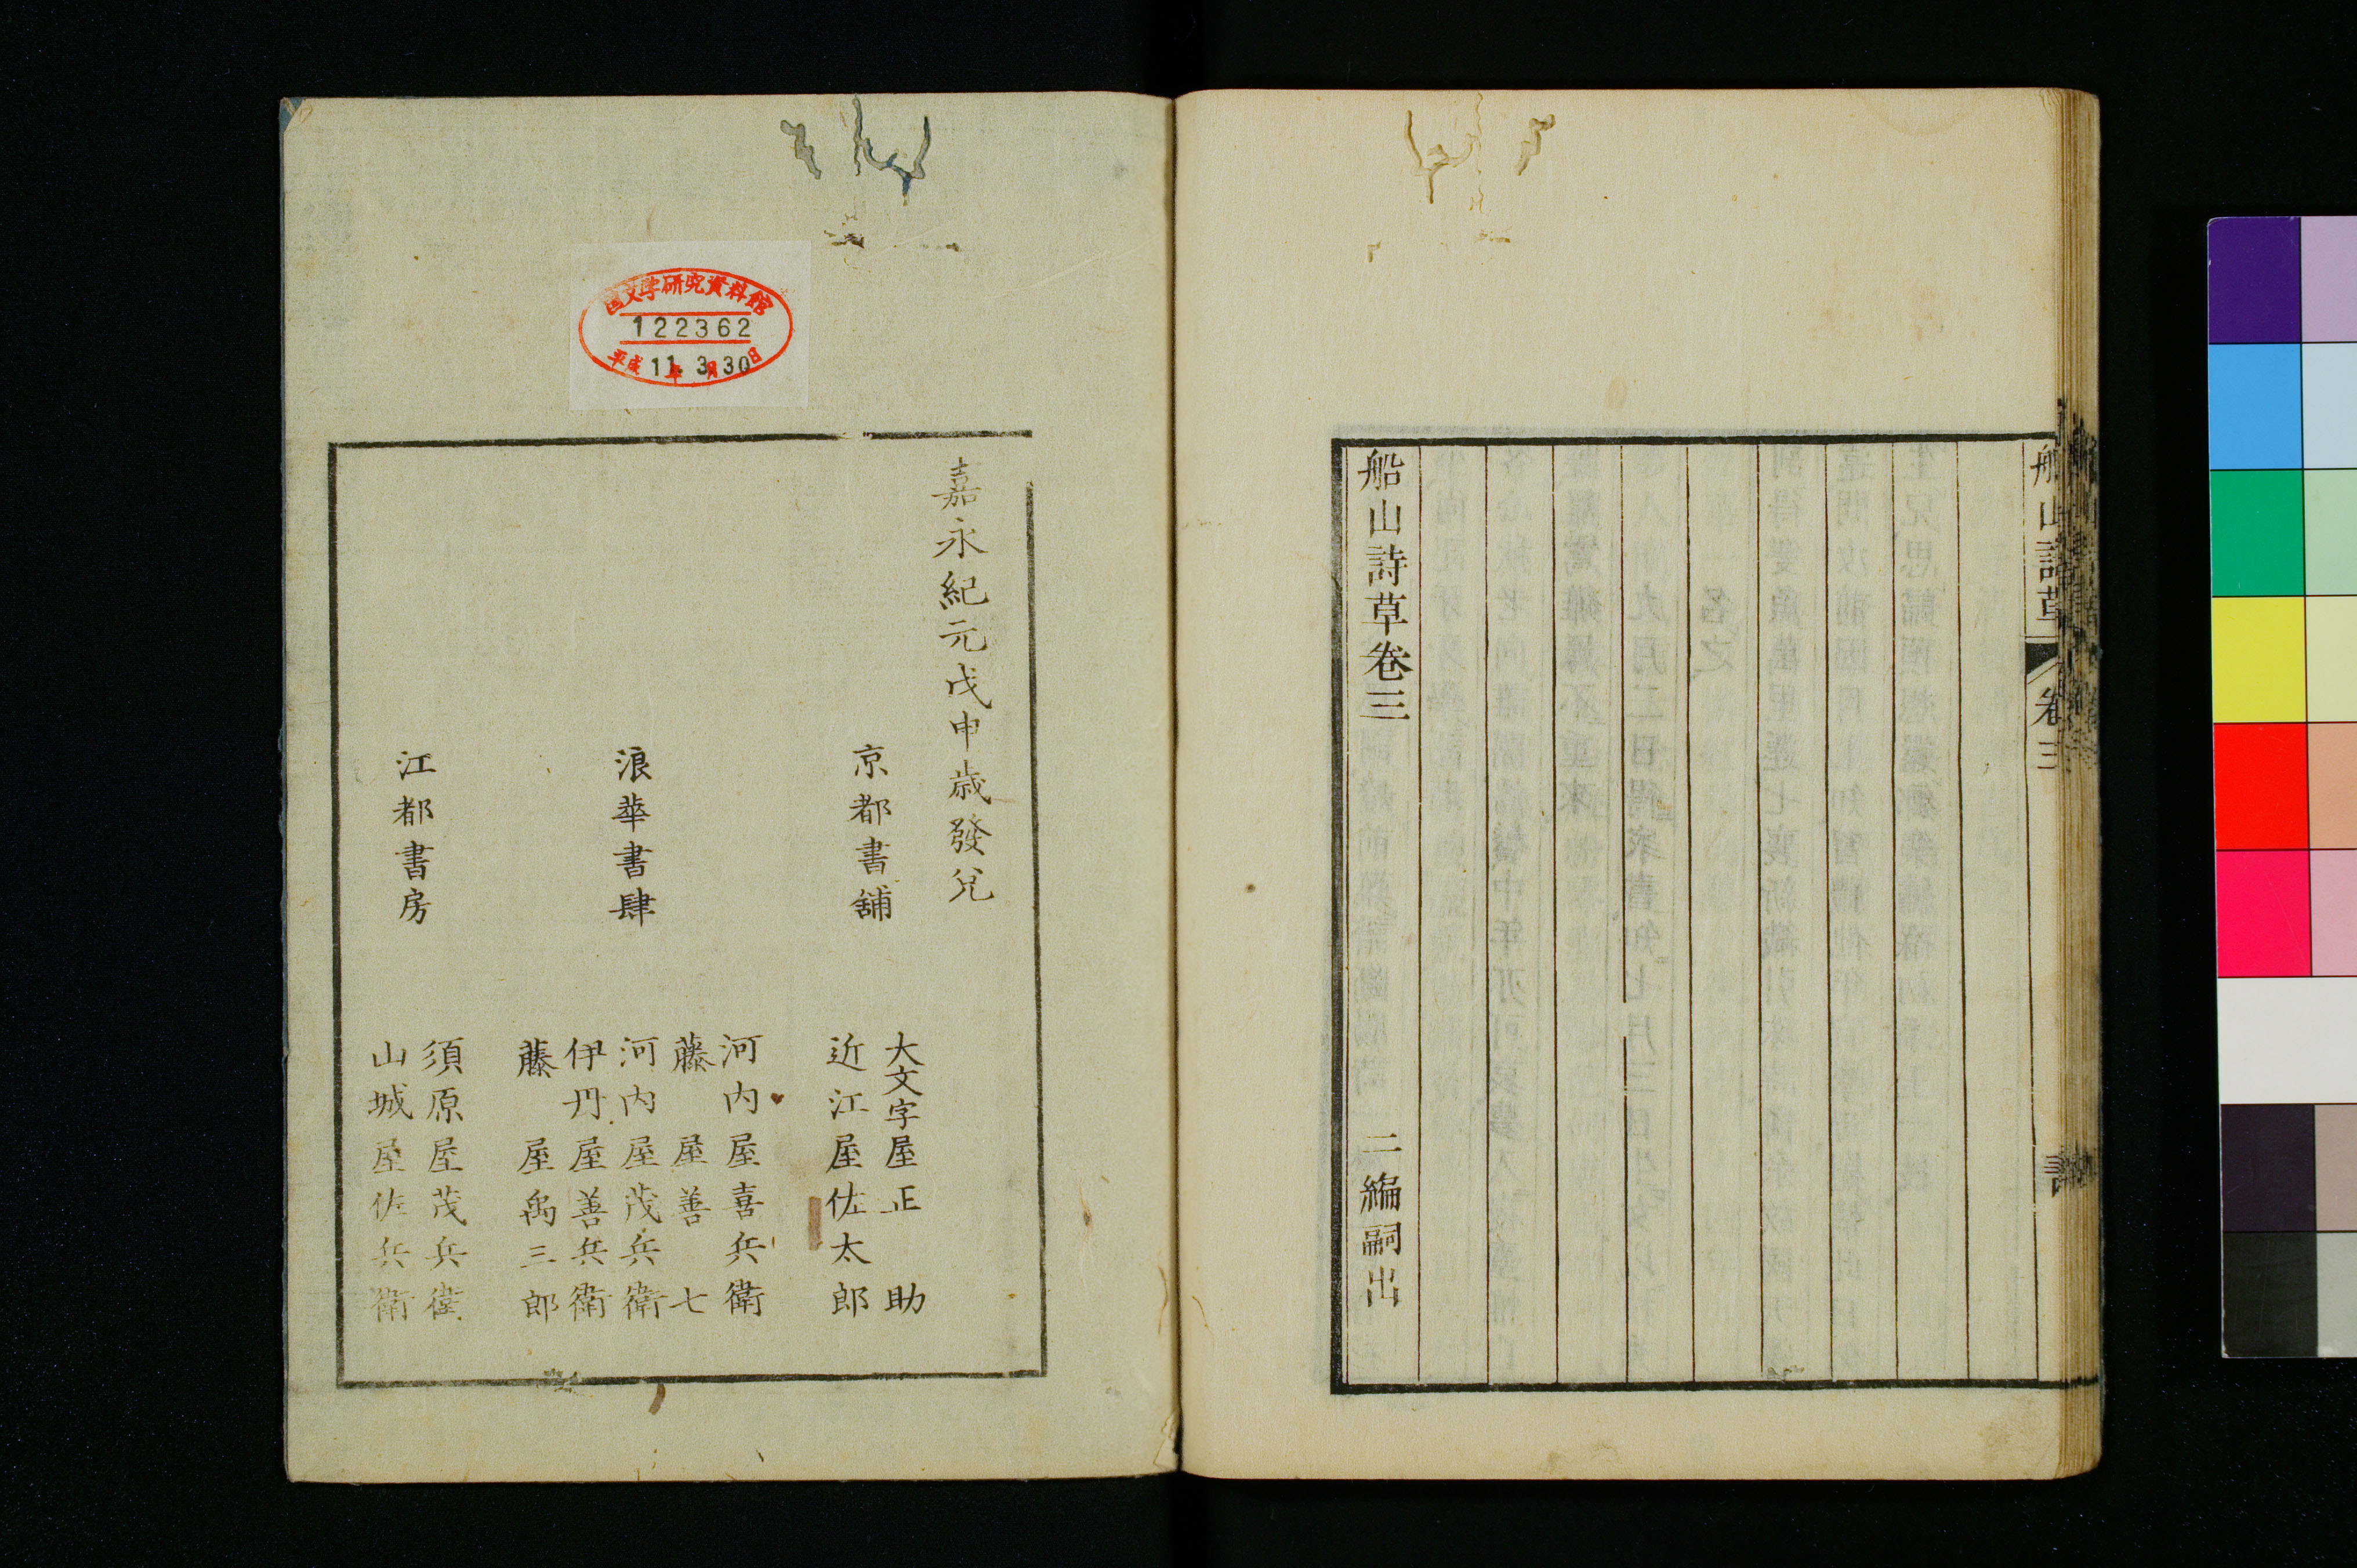 船山詩草 卷三
船山詩草卷三 二編嗣出
国文学研究資料館
122362
平成11年3月30日
嘉永紀元戊申歳發兌
京都書舗
大文字屋正助
近江屋佐太郎
浪華書肆
河内屋喜兵衛
藤屋善七
河内屋茂兵衛
伊丹屋善兵衛
藤屋禹三郎
江都書房
須原屋茂兵衛
山城屋佐兵衛